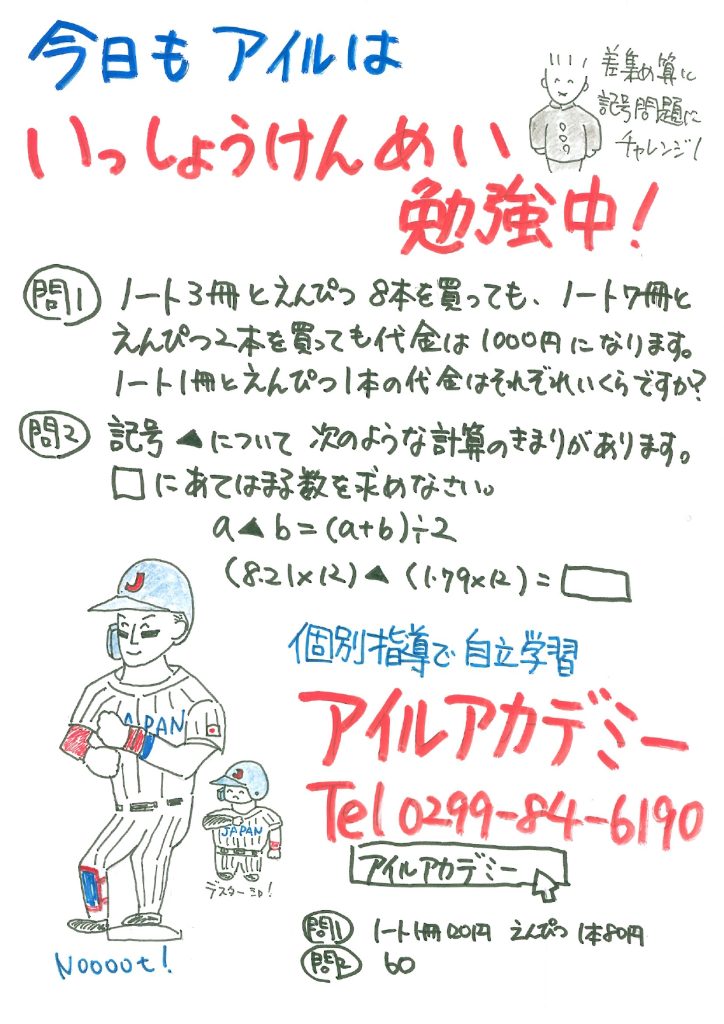 今日も アイルは
いっしょうけんめい
勉強中!
差集め算と
記号問題に
チャレンジ!
問1 ノート3冊とえんぴつ 8本を買っても、ノート7冊と
えんぴつ2本を買っても代金は1000円になります。
ノート1冊とえんぴつ1本の代金はそれぞれいくらですか?
問2 記号 ▲について 次のような計算のきまりがあります。
□にあてはまる数を求めなさい。
a▲b=(a+b)÷2
(8.21×12)▲(1.79×12)=□
個別指導で自立学習
アイルアカデミー
Tel 0299-84-6190
アイルアカデミー
J
JAPAN
J
JAPAN
デスターシロ!
Nooootー!
問1 ノート1冊120円 えんぴつ1本80円
問2 60